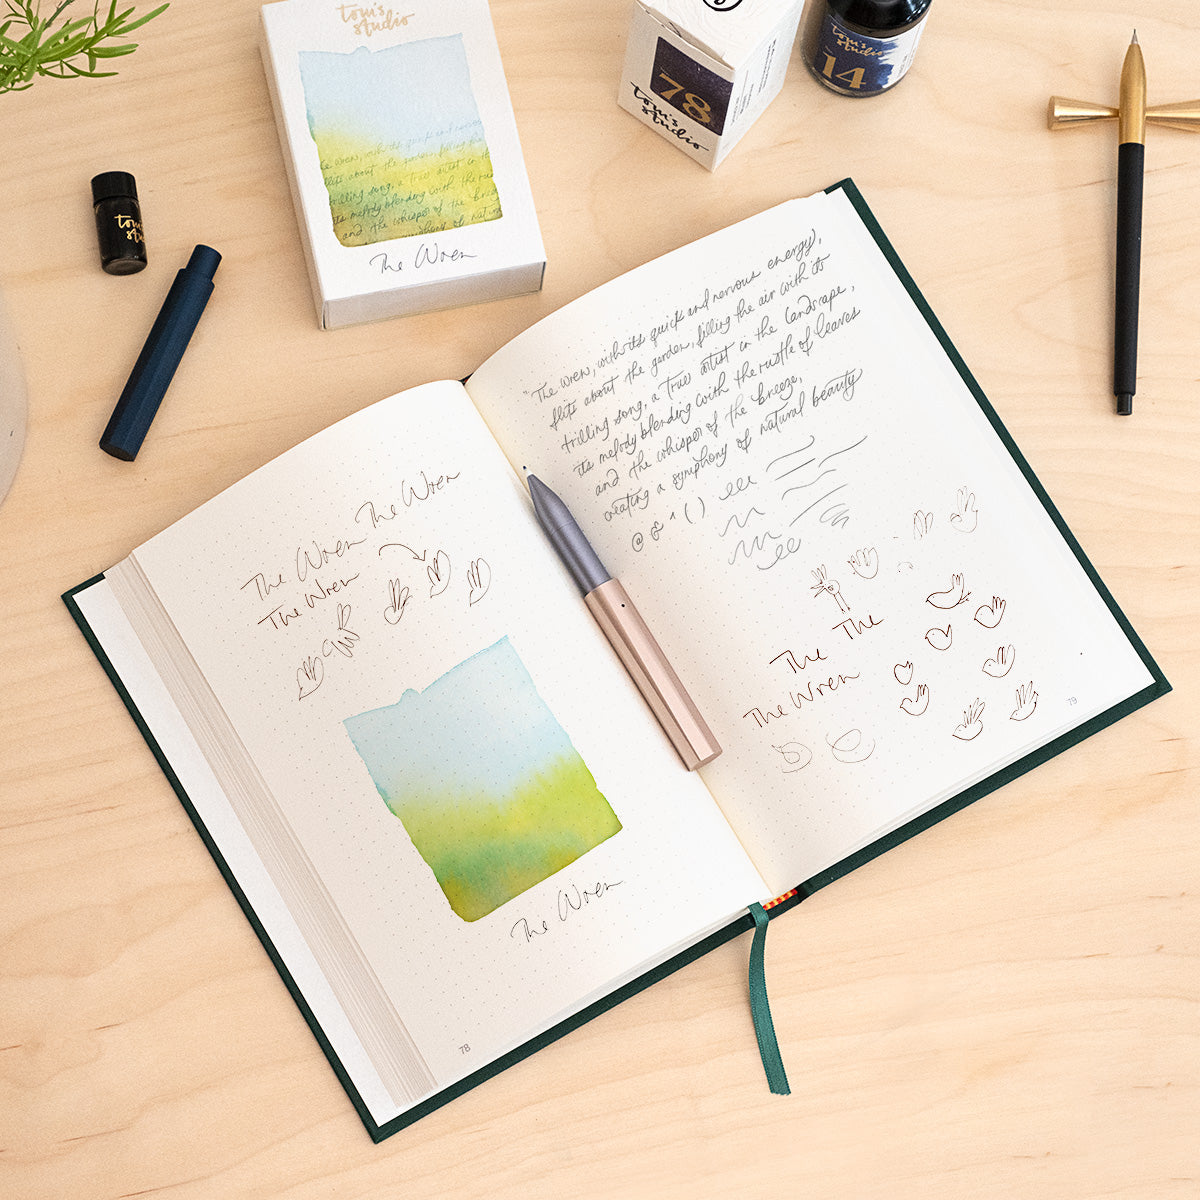 tom's
studio
The Wren, with its quick and nervous
flits about the garden, filling the
trilling song, a true artist in the
its melody blending with the rustle
and the whisper of the breeze
symphony of natural
The Wren
78
tom's
studio
tom's
studio
14
tom's
"The wren, with its quick and nervous energy,
flits about the garden, filling the air with its
trilling song, a true artist in the landscape,
its melody blending with the rustle of leaves
and the whisper of the breeze,
creating a symphony of natural beauty
@ & ^ ( )
The
The
The Wren
79
The Wren The Wren
The Wren
The Wren
78